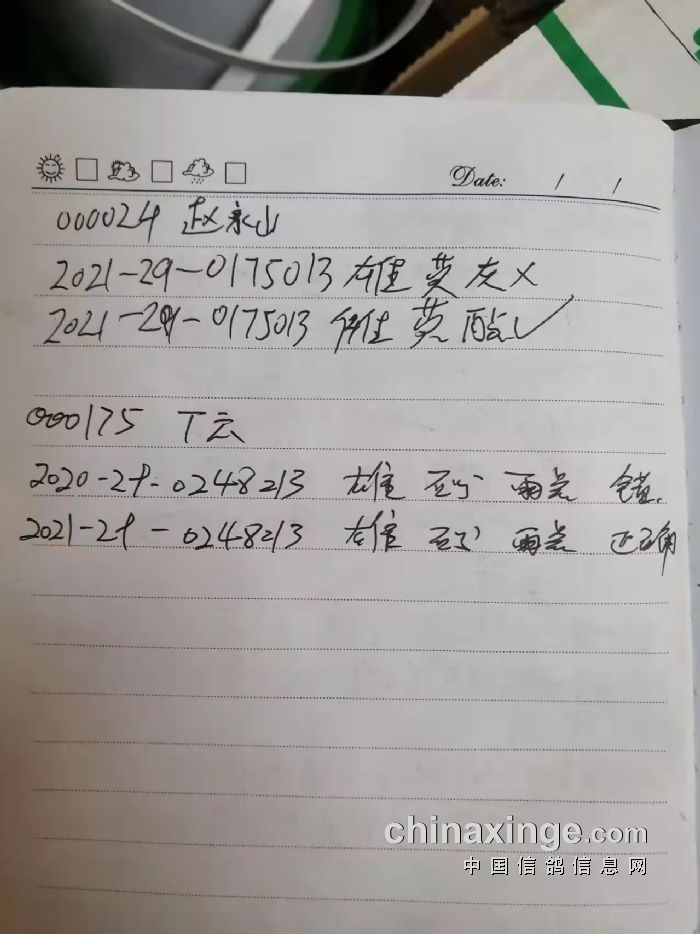 Date: / /
000024 赵永山
2021-29-0175013 雄 黄 灰 ×
2021-29-0175013 雌 黄 酸 ✓
000175 丁云
2020-29-0248213 雄 砂 雨点 错.
2021-29-0248213 雄 砂 雨点 正确
chinaxinge.com
中国信鸽信息网